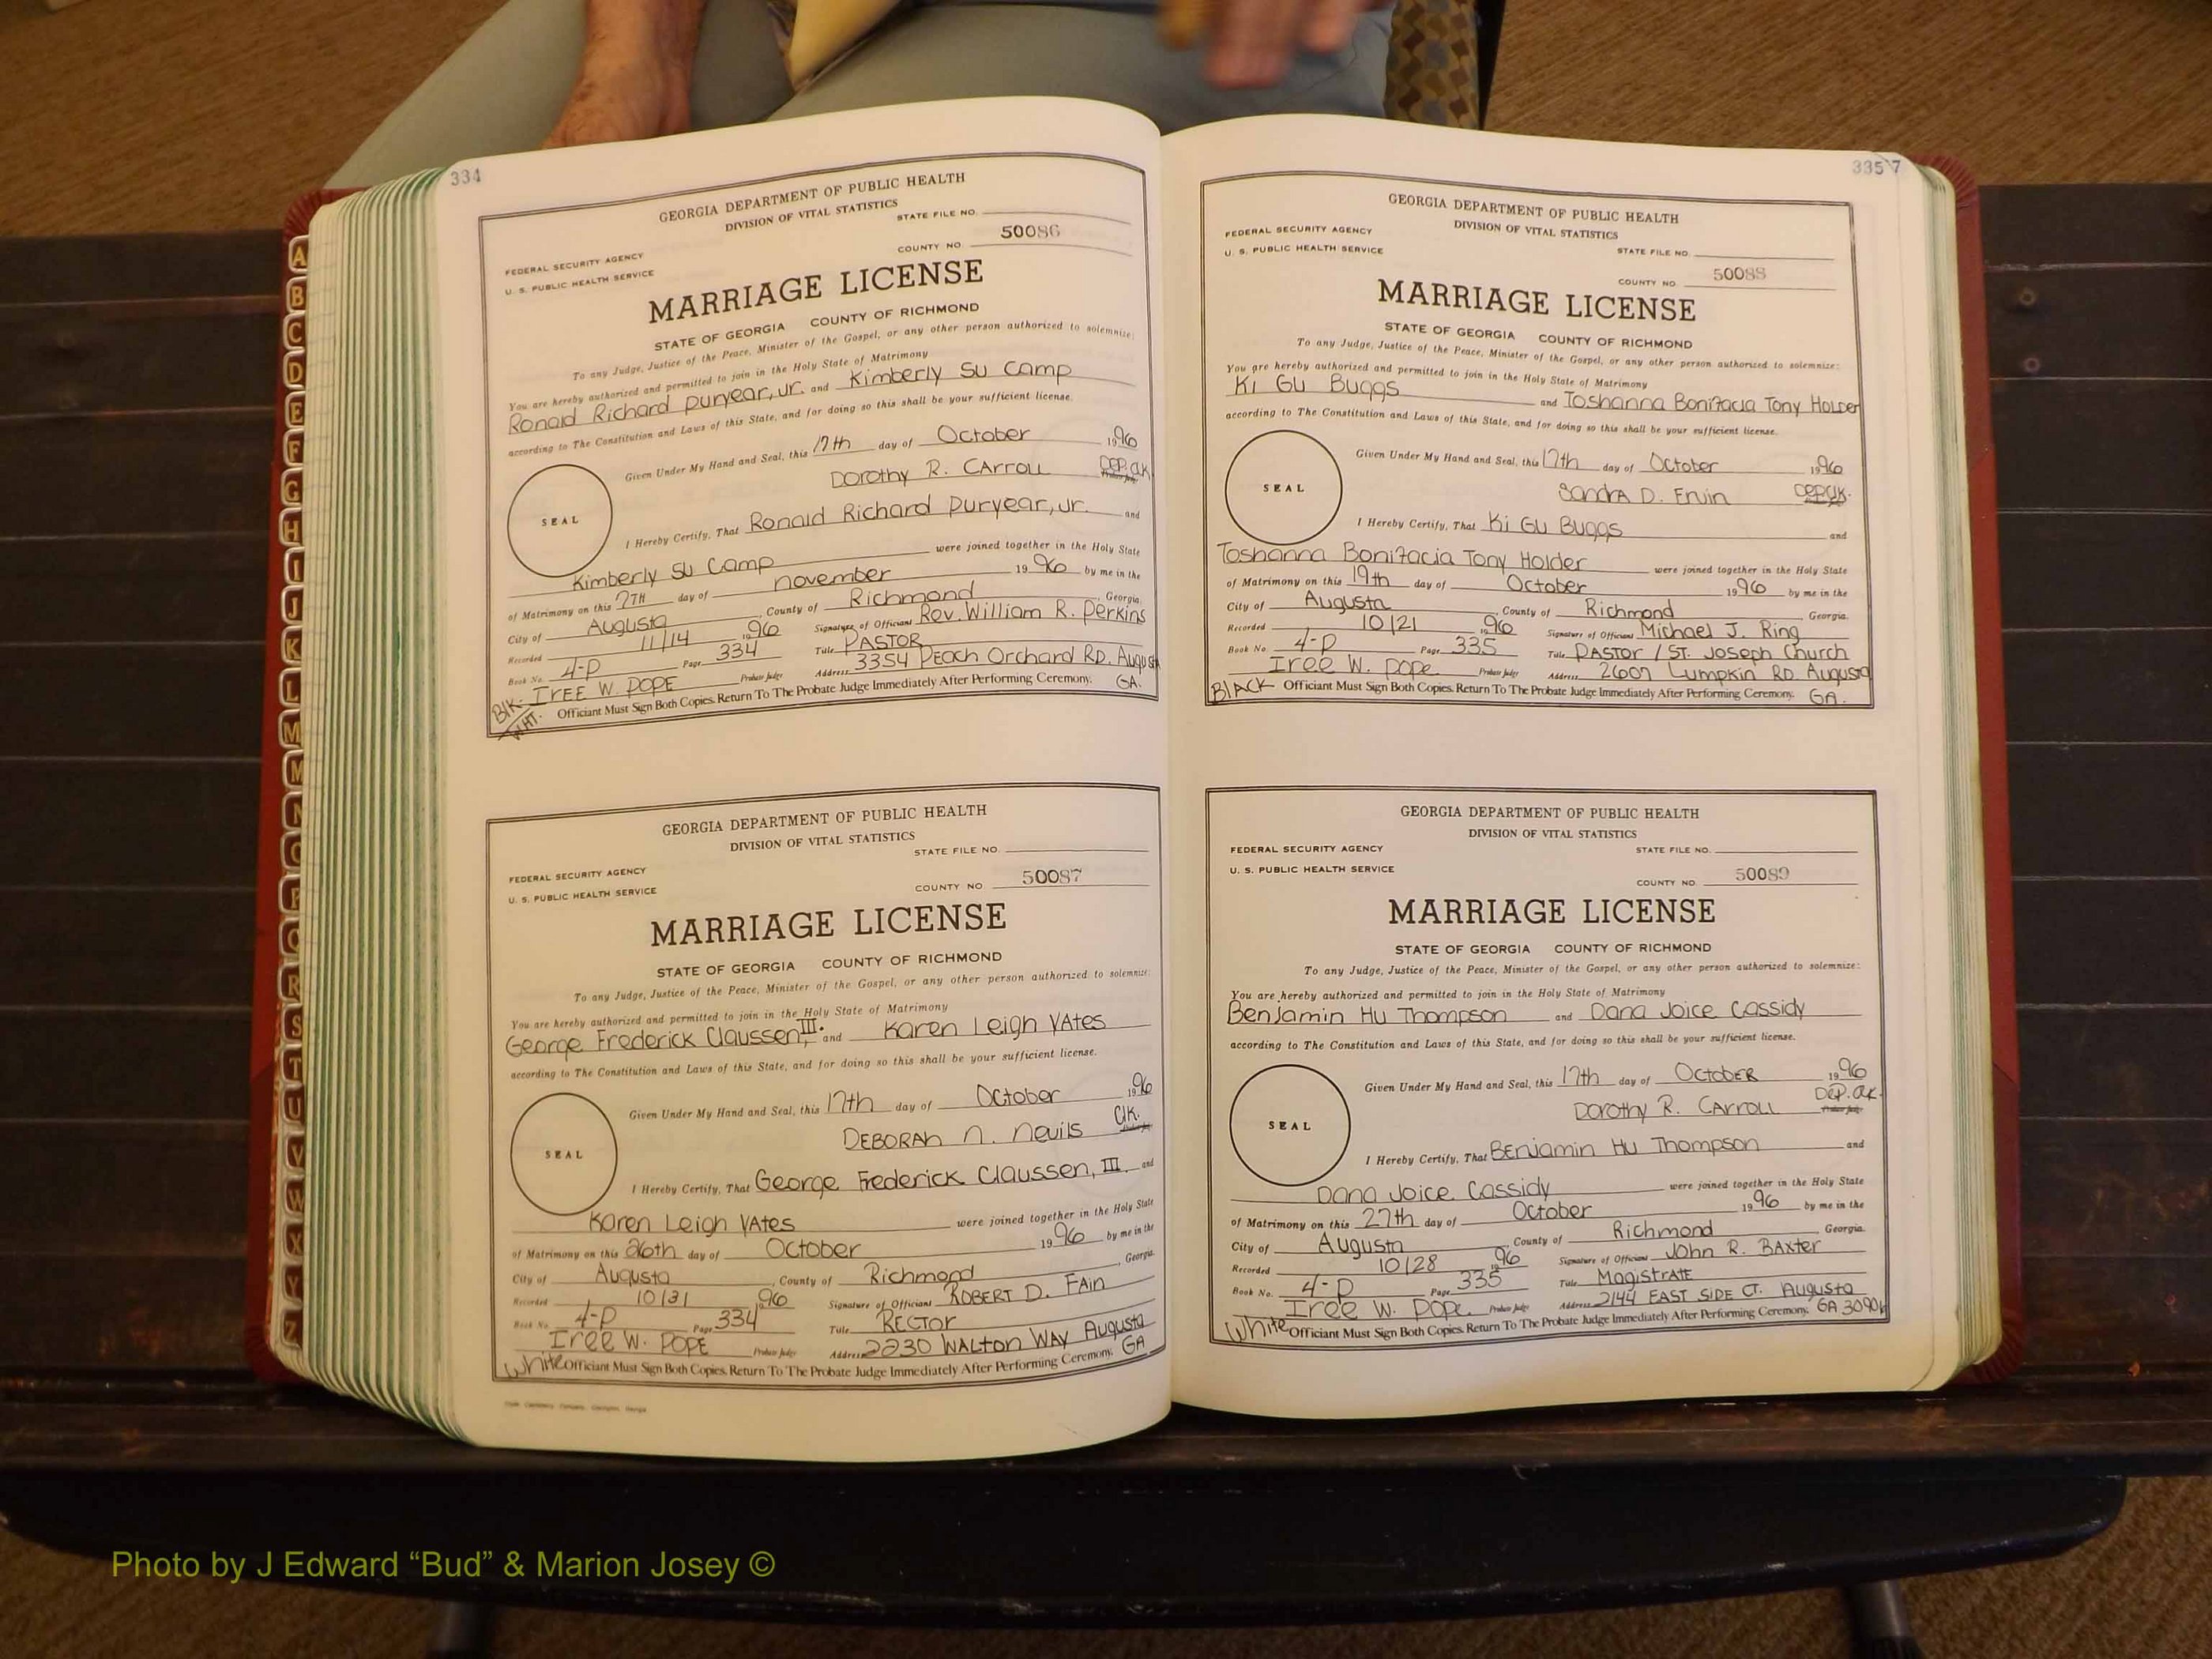 334
GEORGIA DEPARTMENT OF PUBLIC HEALTH
DIVISION OF VITAL STATISTICS
STATE FILE NO.
COUNTY NO. 50086
FEDERAL SECURITY AGENCY
U. S. PUBLIC HEALTH SERVICE
MARRIAGE LICENSE
STATE OF GEORGIA COUNTY OF RICHMOND
To any Judge, Justice of the Peace, Minister of the Gospel, or any other person authorized to solemnize:
You are hereby authorized and permitted to join in the Holy State of Matrimony
Ronald Richard Puryear, Jr. and Kimberly Su Camp
according to The Constitution and Laws of this State, and for doing so this shall be your sufficient license.
Given Under My Hand and Seal, this 17th day of October 1996
Dorothy R. Carroll Dep. Clk.
SEAL
I Hereby Certify, That Ronald Richard Puryear, Jr. and
Kimberly Su Camp were joined together in the Holy State
of Matrimony on this 7TH day of november 1996 by me in the
City of Augusta, County of Richmond, Georgia.
Recorded 11/14 1996 Signature of Official Rev. William R. Perkins
Book No. 4-P Page 334 Title PASTOR
IREE W. POPE Probate Judge Address 3354 Peach Orchard RD. Augusta
Blk. Officiant Must Sign Both Copies. Return To The Probate Judge Immediately After Performing Ceremony. GA.
WHT.
GEORGIA DEPARTMENT OF PUBLIC HEALTH
DIVISION OF VITAL STATISTICS
STATE FILE NO.
COUNTY NO. 50087
FEDERAL SECURITY AGENCY
U. S. PUBLIC HEALTH SERVICE
MARRIAGE LICENSE
STATE OF GEORGIA COUNTY OF RICHMOND
To any Judge, Justice of the Peace, Minister of the Gospel, or any other person authorized to solemnize:
You are hereby authorized and permitted to join in the Holy State of Matrimony
George Frederick Claussen, III. and Karen Leigh Yates
according to The Constitution and Laws of this State, and for doing so this shall be your sufficient license.
Given Under My Hand and Seal, this 17th day of October 1996
DEBORAH N. Nevils Clk.
SEAL
I Hereby Certify, That George Frederick Claussen, III and
Karen Leigh Yates were joined together in the Holy State
of Matrimony on this 26th day of October 1996 by me in the
City of Augusta, County of Richmond, Georgia.
Recorded 10/31 1996 Signature of Official ROBERT D. FAIN
Book No. 4-P Page 334 Title RECTOR
Iree W. POPE Probate Judge Address 2230 WALTON WAY Augusta
White Officiant Must Sign Both Copies. Return To The Probate Judge Immediately After Performing Ceremony. GA
335 7
GEORGIA DEPARTMENT OF PUBLIC HEALTH
DIVISION OF VITAL STATISTICS
FEDERAL SECURITY AGENCY
U. S. PUBLIC HEALTH SERVICE
STATE FILE NO.
COUNTY NO. 50088
MARRIAGE LICENSE
STATE OF GEORGIA COUNTY OF RICHMOND
To any Judge, Justice of the Peace, Minister of the Gospel, or any other person authorized to solemnize:
You are hereby authorized and permitted to join in the Holy State of Matrimony
Ki Gu Buggs and Toshanna Bonifacia Tony Holder
according to The Constitution and Laws of this State, and for doing so this shall be your sufficient license.
Given Under My Hand and Seal, this 17th day of October 1996
Sandra D. Ervin Dep. Clk.
SEAL
I Hereby Certify, That Ki Gu Buggs and
Toshanna Bonifacia Tony Holder were joined together in the Holy State
of Matrimony on this 19th day of October 1996 by me in the
City of Augusta, County of Richmond Georgia.
Recorded 10/21 1996 Signature of Official Michael J. Ring
Book No. 4-P Page 335 Title PASTOR / ST. Joseph Church
Iree W. Pope Probate Judge Address 2607 Lumpkin RD. Augusta
BlACK Officiant Must Sign Both Copies. Return To The Probate Judge Immediately After Performing Ceremony. GA.
GEORGIA DEPARTMENT OF PUBLIC HEALTH
DIVISION OF VITAL STATISTICS
FEDERAL SECURITY AGENCY
STATE FILE NO.
U. S. PUBLIC HEALTH SERVICE
COUNTY NO. 50089
MARRIAGE LICENSE
STATE OF GEORGIA COUNTY OF RICHMOND
To any Judge, Justice of the Peace, Minister of the Gospel, or any other person authorized to solemnize:
You are hereby authorized and permitted to join in the Holy State of Matrimony
Benjamin Hu Thompson and Dana Joice Cassidy
according to The Constitution and Laws of this State, and for doing so this shall be your sufficient license.
Given Under My Hand and Seal, this 17th day of OCTOBER 1996
Dorothy R. Carroll Dep. Clk.
SEAL
I Hereby Certify, That Benjamin Hu Thompson and
Dana Joice Cassidy were joined together in the Holy State
of Matrimony on this 27th day of October 1996 by me in the
City of Augusta County of Richmond Georgia.
Recorded 10/28 1996 Signature of Official John R. Baxter
Book No. 4-P Page 335 Title MagistrATE
Iree W. Pope Probate Judge Address 2144 EAST SIDE CT. Augusta
White Officiant Must Sign Both Copies. Return To The Probate Judge Immediately After Performing Ceremony. GA 3090
A
B
C
D
E
F
G
H
I
J
K
L
M
M
N
O
P
Q
R
S
T
U
V
W
X
Y
Z
Photo by J Edward “Bud” & Marion Josey ©